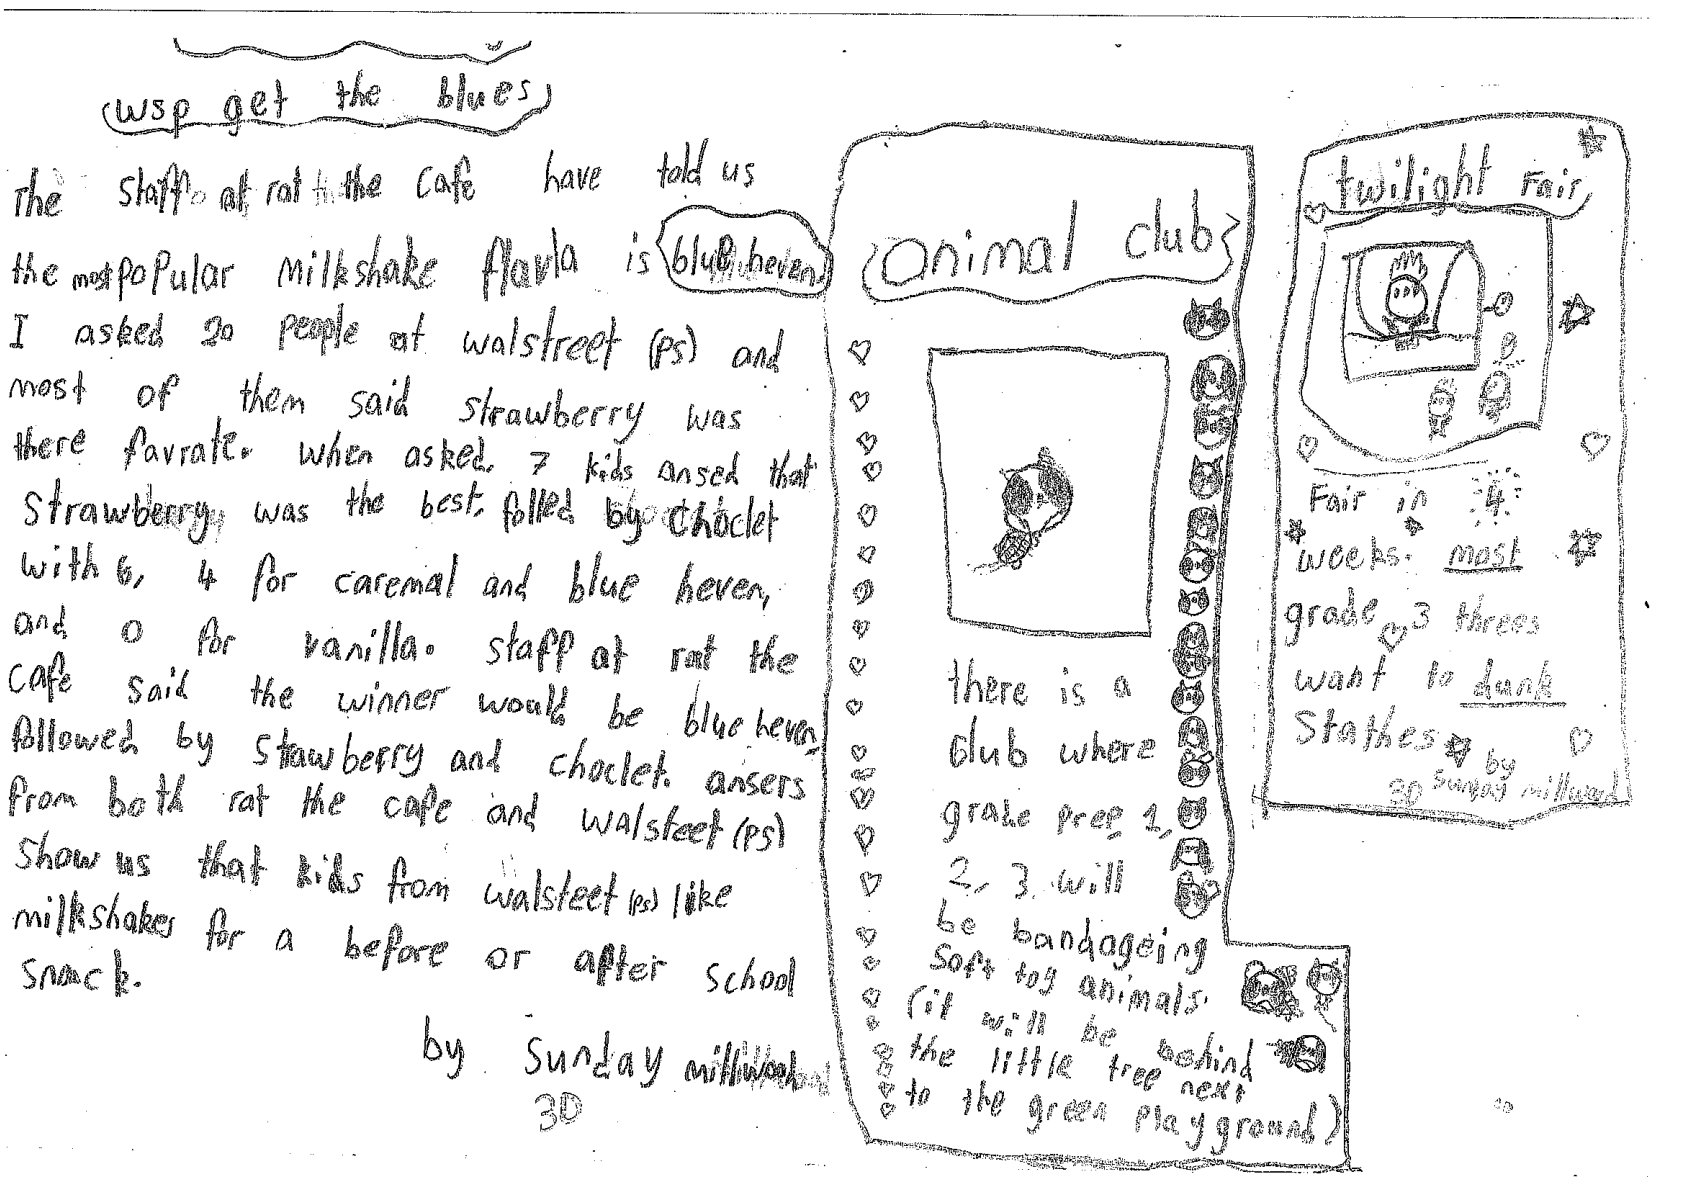 wsp get the blues
The staff at rat the cafe have told us
the most popular milkshake flavla is blue heven.
I asked 20 people at walstreet (ps) and
most of them said strawberry was
there favrate. When asked, 7 kids ansed that
strawberry was the best, folled by choclet
with 6, 4 for caremal and blue heven,
and 0 for vanilla. staff at rat the
cafe said the winner would be blue heven,
followed by stawberry and choclet. ansers
from both rat the cafe and walsteet (ps)
show us that kids from walsteet (ps) like
milkshakes for a before or after school
snack.
by Sunday millwood
3D
animal club
there is a
club where
grade prep 1,
2, 3 will
be bandageing
soft toy animals.
(it will be behind
the little tree next
to the green playground)
twilight Fair
Fair in 4
weeks. most
grade 3 threes
want to dunk
Stathes
by
3D Sunday millwood